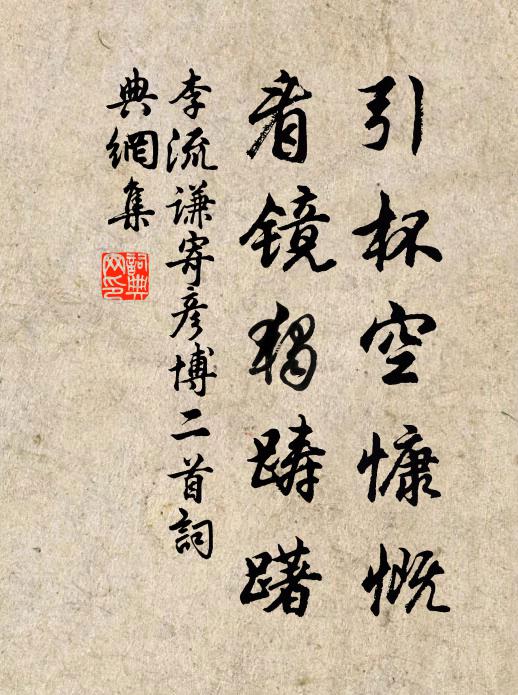 引杯空慷慨
看镜独踌躇
李流謙寄彦博二首詞
典網集
詞典
网印